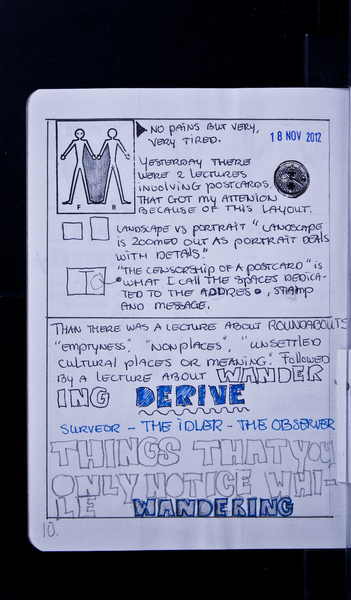 NO PAINS BUT VERY,
VERY TIRED.
18 NOV 2012
YESTERDAY THERE
WERE 2 LECTURES
INVOLVING POSTCARDS.
THAT GOT MY ATTENION
BECAUSE OF THIS LAYOUT.
F B
LANDSCAPE VS PORTRAIT "LANDSCAPE
IS ZOOMED OUT AS PORTRAIT DEALS
WITH DETAILS."
"THE CENSORSHIP OF A POSTCARD" IS
WHAT I CALL THE SPACES DEDICA-
TED TO THE ADDRES, STAMP
AND MESSAGE.
THAN THERE WAS A LECTURE ABOUT ROUNDABOUTS
"EMPTYNESS", "NONPLACES", "UNSETTLED
CULTURAL PLACES OR MEANING". FOLLOWED
BY A LECTURE ABOUT WANDER
ING DERIVE
SURVEOR - THE IDLER - THE OBSERVER
THINGS THAT YOU
ONLY NOTICE WHI-
LE WANDERING
10.